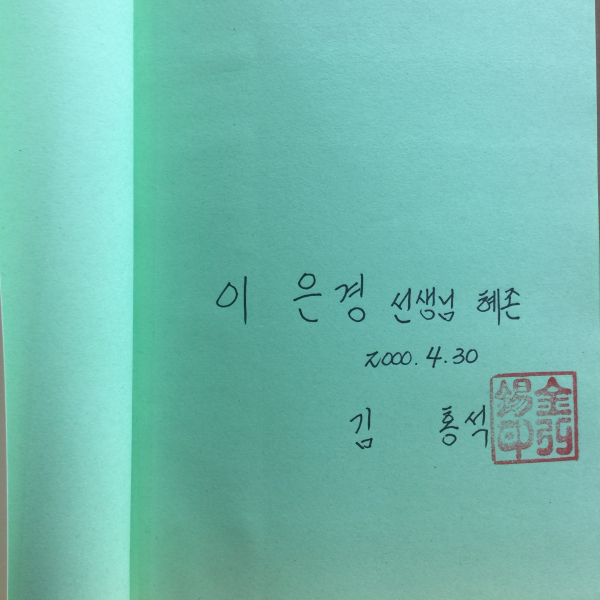 이 은경 선생님 혜존
2000. 4. 30
김 홍석
金弘錫印